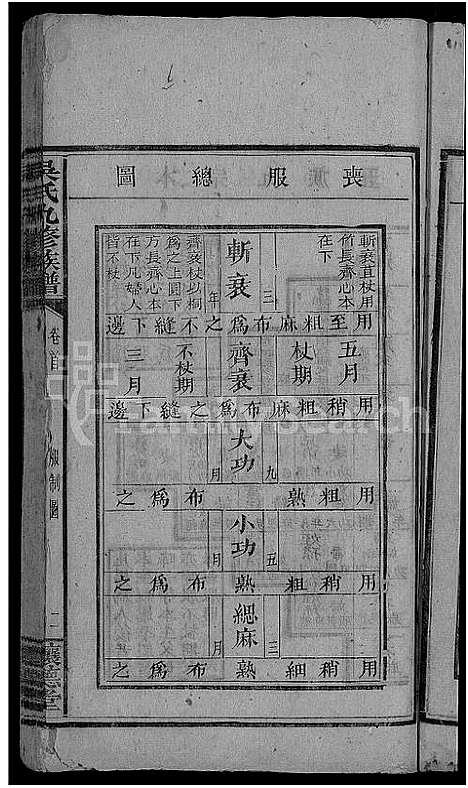 喪服總圖
斬衰苴杖用
竹長齊心本
在下
斬衰
三年
齊衰杖以桐
為之上圓下
方長齊心本
在下凡婦人
皆不杖
用至粗麻布為之不縫下邊
五月
杖期
齊衰
不杖期
三月
用稍粗麻布為之縫下邊
大功
九月
用粗熟布為之
小功
五月
用稍粗熟布為之
緦麻
三月
用稍細熟布為之
吳氏九修族譜
卷首
服制圖
二
FamilySearch